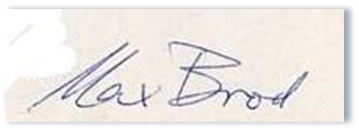 Max Brod